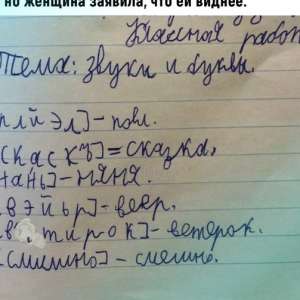 но женщина заявила, что ей виднее.
Классная работ
Тема: звуки и буквы.
пяйэл]-повл.
скаскъ]=сказка.
нань]-няня.
вэйьр]-веер.
в тирок]-ветерок.
смишно]-смешно.